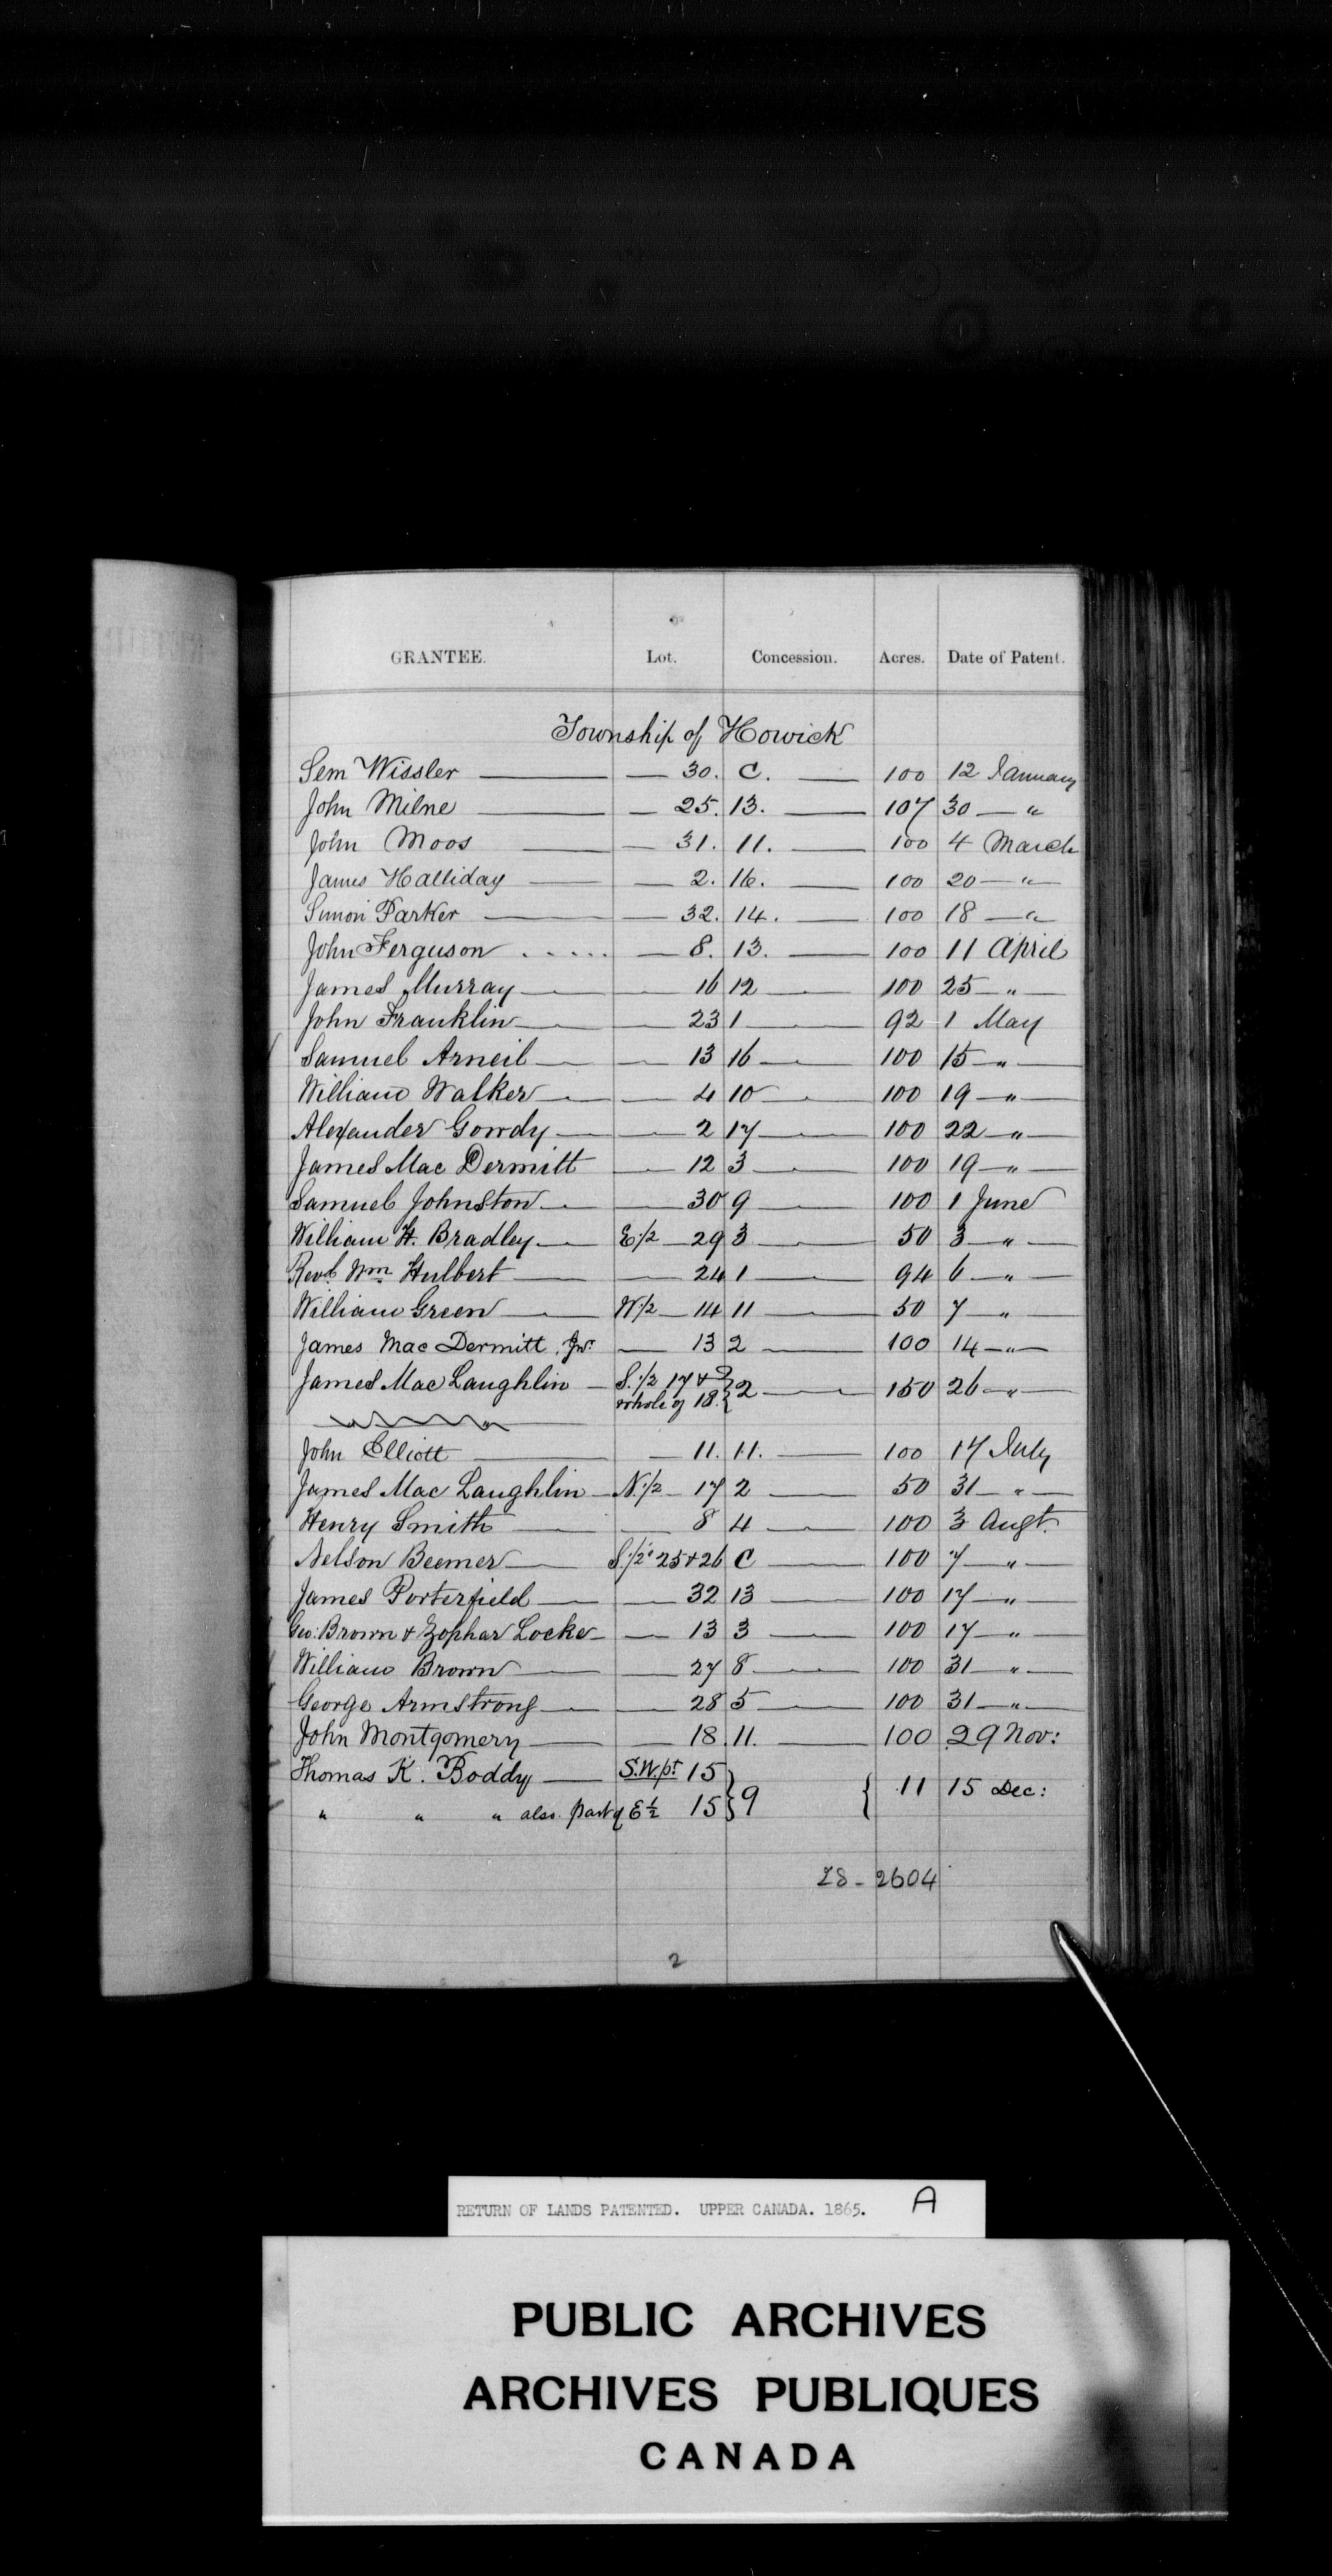 GRANTEE. Lot. Concession. Acres. Date of Patent.
Township of Howick
Sem Wissler — 30. C. — 100 12 January
John Milne — 25. 13. — 107 30 — "
John Moos — 31. 11. — 100 4 March
James Halliday — 2. 16. — 100 20 — "
Simon Parker — 32. 14. — 100 18 — "
John Ferguson ..... — 8. 13. — 100 11 April
James Murray — 16 12 — 100 25 — "
John Franklin — 23 1 — 92 1 May
Samuel Arneil — 13 16 — 100 15 — "
William Walker — 4 10 — 100 19 — "
Alexander Gowdy — 2 17 — 100 22 — "
James Mac Dermitt — 12 3 — 100 19 — "
Samuel Johnston — 30 9 — 100 1 June
William H. Bradley — E.1/2 — 29 3 — 50 3 — "
Revd. Wm. Hulbert — 24 1 — 94 6 — "
William Green — W1/2 — 14 11 — 50 7 — "
James Mac Dermitt, Jnr. — 13 2 — 100 14 — "
James Mac Laughlin — S.1/2 17 & } 2 — 150 26 — "
whole of 18. }
John Elliott — 11. 11. — 100 17 July
James Mac Laughlin — N.1/2 — 17 2 — 50 31 — "
Henry Smith — 8 4 — 100 3 Augt.
Nelson Beemer — S.1/2s 25 & 26 C — 100 7 — "
James Porterfield — 32 13 — 100 17 — "
Geo: Brown & Zophar Locke — 13 3 — 100 17 — "
William Brown — 27 8 — 100 31 — "
George Armstrong — 28 5 — 100 31 — "
John Montgomery — 18. 11. — 100 29 Nov:
Thomas K. Boddy — S.W.pt 15 } 9 { 11 15 Dec:
" " " also part of E 1/2 15 }
28 - 2604
2
RETURN OF LANDS PATENTED. UPPER CANADA. 1865. A
PUBLIC ARCHIVES
ARCHIVES PUBLIQUES
CANADA